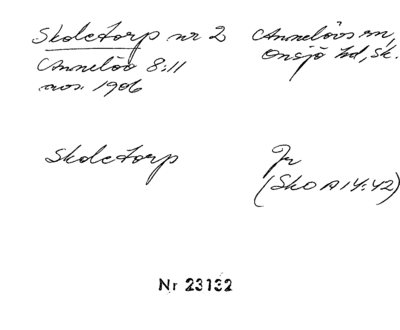 Skoletorp nr 2 Annelövs sn,
Annelöv 8:11 Onsjö hd, Sk.
avs. 1906
Skoletorp Jr
(SkO A 14:42)
Nr 23132